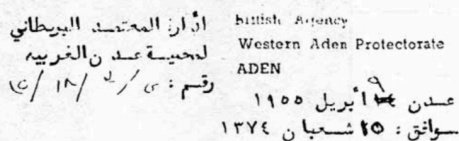 ادارة المعتمد البريطاني
لمحمية عدن الغربيه
رقم :
British Agency
Western Aden Protectorate
ADEN
عدن ١٩ أبريل ١٩٥٥
موافق : ٢٥ شعبان ١٣٧٤